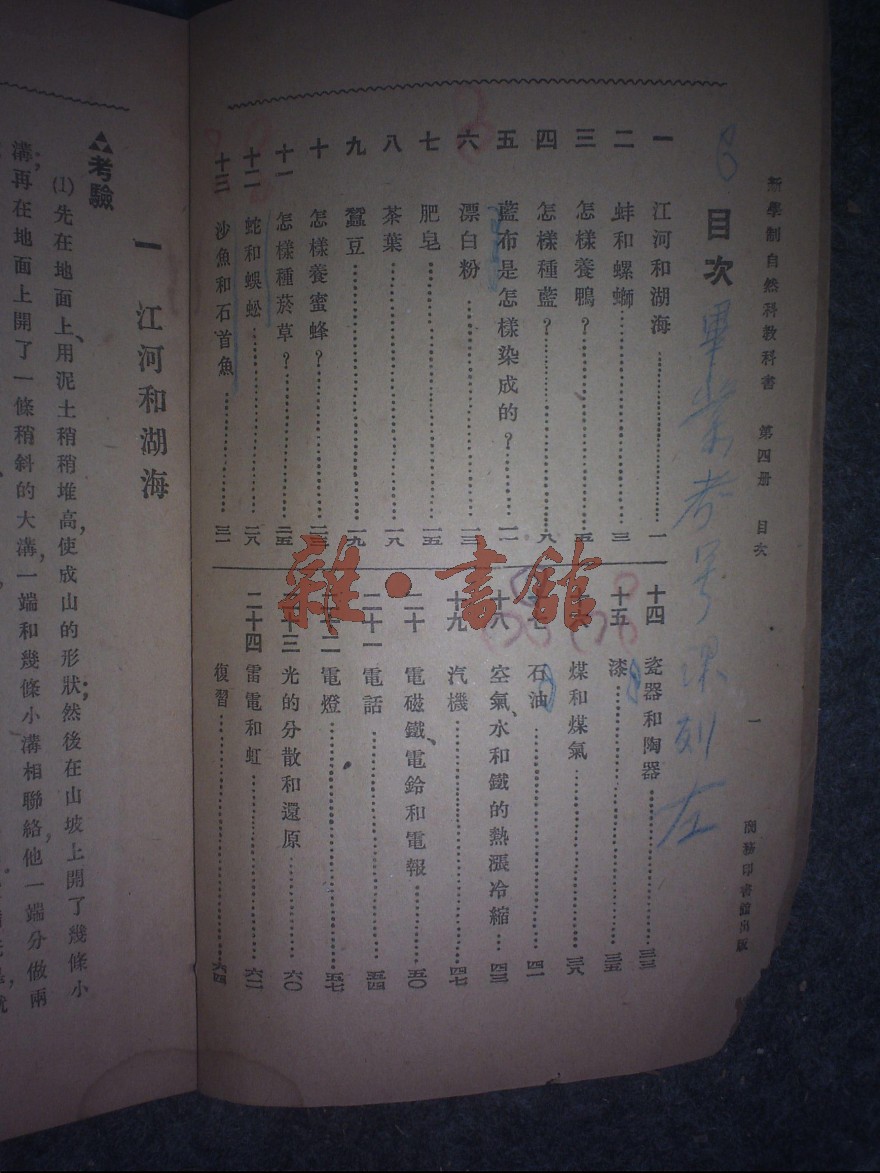 新學制自然科教科書 第四册 目次 一 商務印書館出版
目次
畢業考 課列左
一 江河和湖海 一
二 蚌和螺螄 三
三 怎樣養鴨？ 五
四 怎樣種藍？ 八
五 藍布是怎樣染成的？ 一一
六 漂白粉 一三
七 肥皂 一五
八 茶葉 一八
九 蠶豆 一九
十 怎樣養蜜蜂？ 二三
十一 怎樣種菸草？ 二五
十二 蛇和蜈蚣 二八
十三 沙魚和石首魚 三一
十四 瓷器和陶器 三三
十五 漆 三五
十六 煤和煤氣 三八
十七 石油 四二
十八 空氣、水和鐵的熱漲冷縮 四三
十九 汽機 四七
二十 電磁鐵、電鈴和電報 五〇
二十一 電話 五四
二十二 電燈 五七
二十三 光的分散和還原 六〇
二十四 雷電和虹 六二
復習 六四
雜·書館
一 江河和湖海
考驗
(1)先在地面上、用泥土稍稍堆高，使成山的形狀；然後在山坡上開了幾條小
溝；再在地面上開了一條稍斜的大溝，一端和幾條小溝相聯絡，他一端分做兩